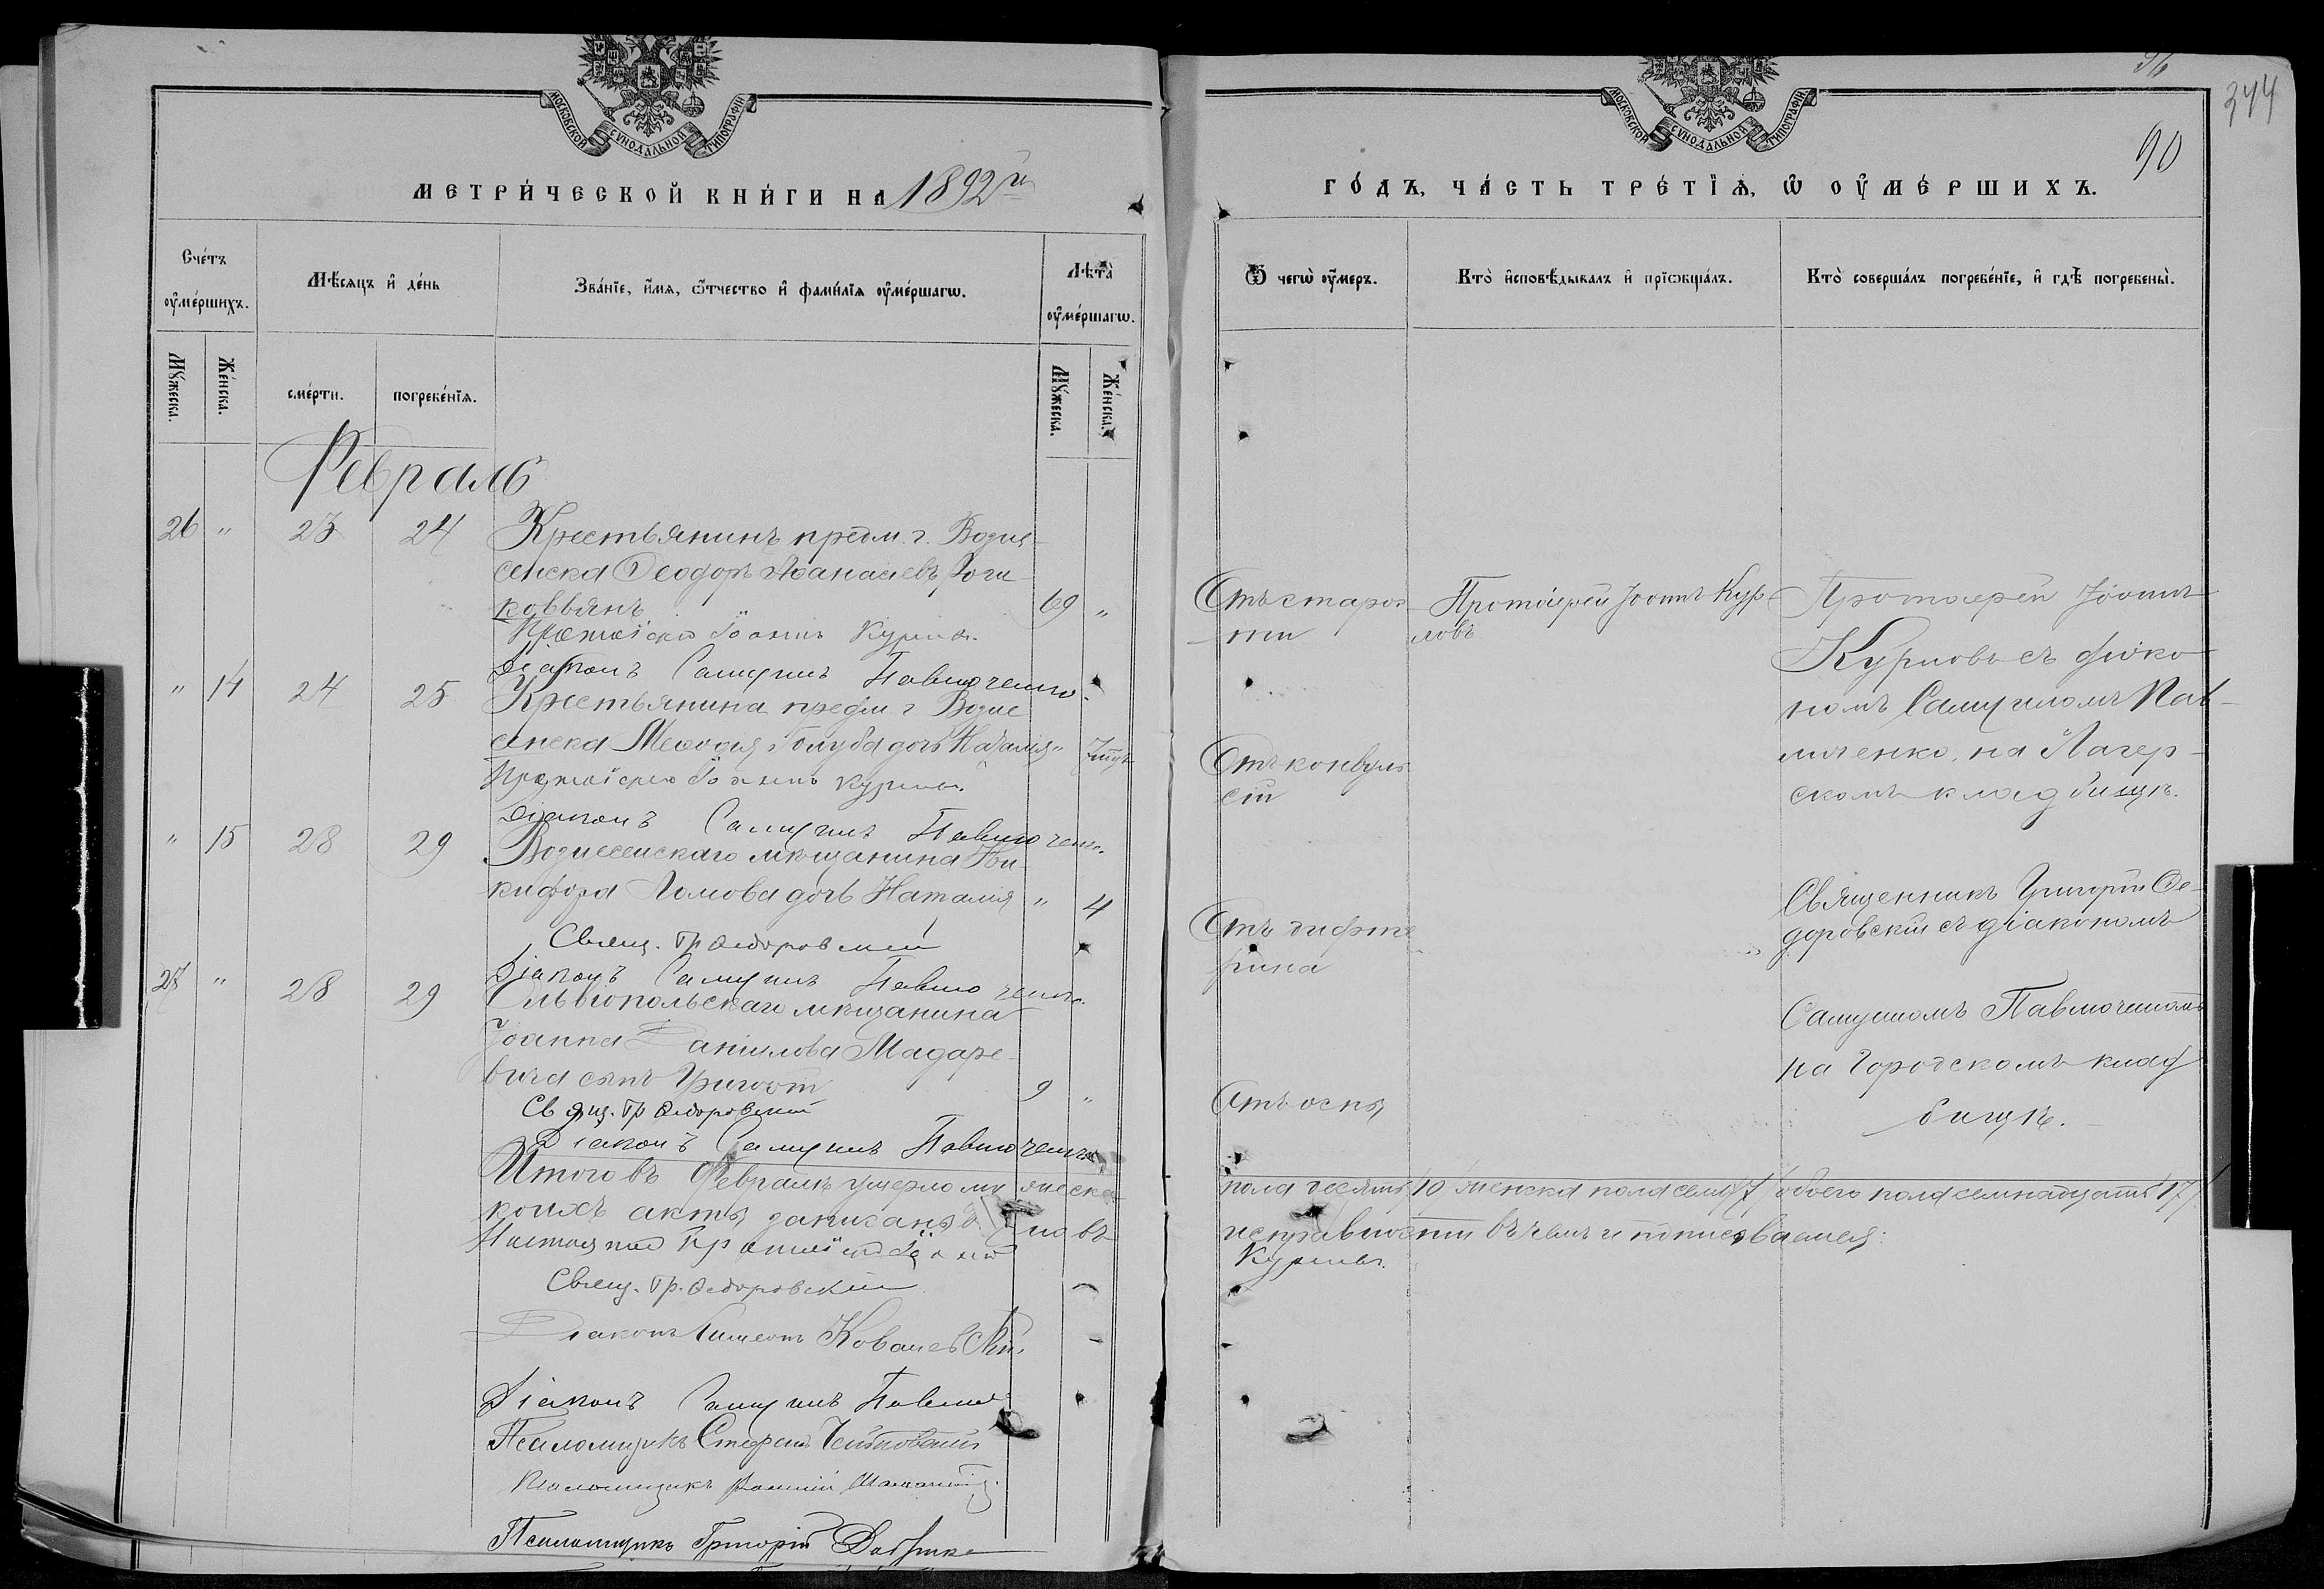 МОСКОВСКОЙ СѴНОДАЛЬНОЙ ТИПОГРАФІИ
МЕТРИ́ЧЕСКОЙ КНИ́ГИ НА 1892й
Сче́тъ оу҆ме́ршихъ.
Мѣ́сяцъ и҆ де́нь
Зва́нїе, и҆́мя, ѻ҆́тчество и҆ фами́лїя оу҆ме́ршагѡ.
Лѣ́та оу҆ме́ршагѡ.
Мꙋ́жеска.
Же́нска.
сме́рти.
погребе́нїя.
Мꙋ́жеска.
Же́нска.
Февраль
26 " 23 24 Крестьянинъ предм. г. Возне
сенска Ѳеодоръ Аѳанасіевъ
69 "
Протоіерей Іоаннъ Курловъ
Діаконъ Самуилъ Павлюченко.
" 14 24 25 Крестьянина предм. г. Возне
сенска Меѳодія Голуба дочь Наталія "
Протоіерей Іоаннъ Курловъ.
Діаконъ Самуилъ Павлюченко.
" 15 28 29 Вознесенскаго мѣщанина Ни
кифора Ломова дочь Наталія " 4
Свящ. Гр. Ѳедоровскій
Діаконъ Самуилъ Павлюченко.
27 " 28 29 Ольвіопольскаго мѣщанина
Іоанна Данилова Мадаре
вича сынъ Григорій 9 "
Свящ. Гр. Ѳедоровскій
Діаконъ Самуилъ Павлюченко
Итого въ Февралѣ умерло мужеска
коихъ акты записаны
Настоящей Протоіерей Іоаннъ
Свящ. Гр. Ѳедоровскій
Діаконъ Симеонъ Ковалевскій.
Діаконъ Самуилъ Павлюч
Псаломщикъ Стефанъ
Псаломщикъ
Псаломщикъ Григорій
МОСКОВСКОЙ СѴНОДАЛЬНОЙ ТИПОГРАФІИ
96
344
90
ГО́ДЪ, ЧА́СТЬ ТРЕ́ТЇЯ, Ѡ҆ ОУ҆МЕ́РШИХЪ.
Ѿ чегѡ̀ оу҆́меръ.
Кто̀ и҆сповѣ́дывалъ и҆ прїѡбща́лъ.
Кто̀ соверша́лъ погребе́нїе, и҆ гдѣ̀ погребены̀.
Отъ старос
ти
Протоіерей Іоаннъ Кур
ловъ
Протоіерей Іоаннъ
Курловъ съ діако
номъ Самуиломъ Пав
люченко, на Лагер
скомъ кладбищѣ.
Отъ конвуль
сій
Отъ дифте
рита
Священникъ Григорій Ѳе
доровскій съ діакономъ
Самуиломъ Павлюченкомъ
на Городскомъ клад
бищѣ.
Отъ оспы
пола десять /10/ женска пола семь /7/ обоего пола семнадцать /17/
исправности въ чемъ и подписываемся:
Курловъ.